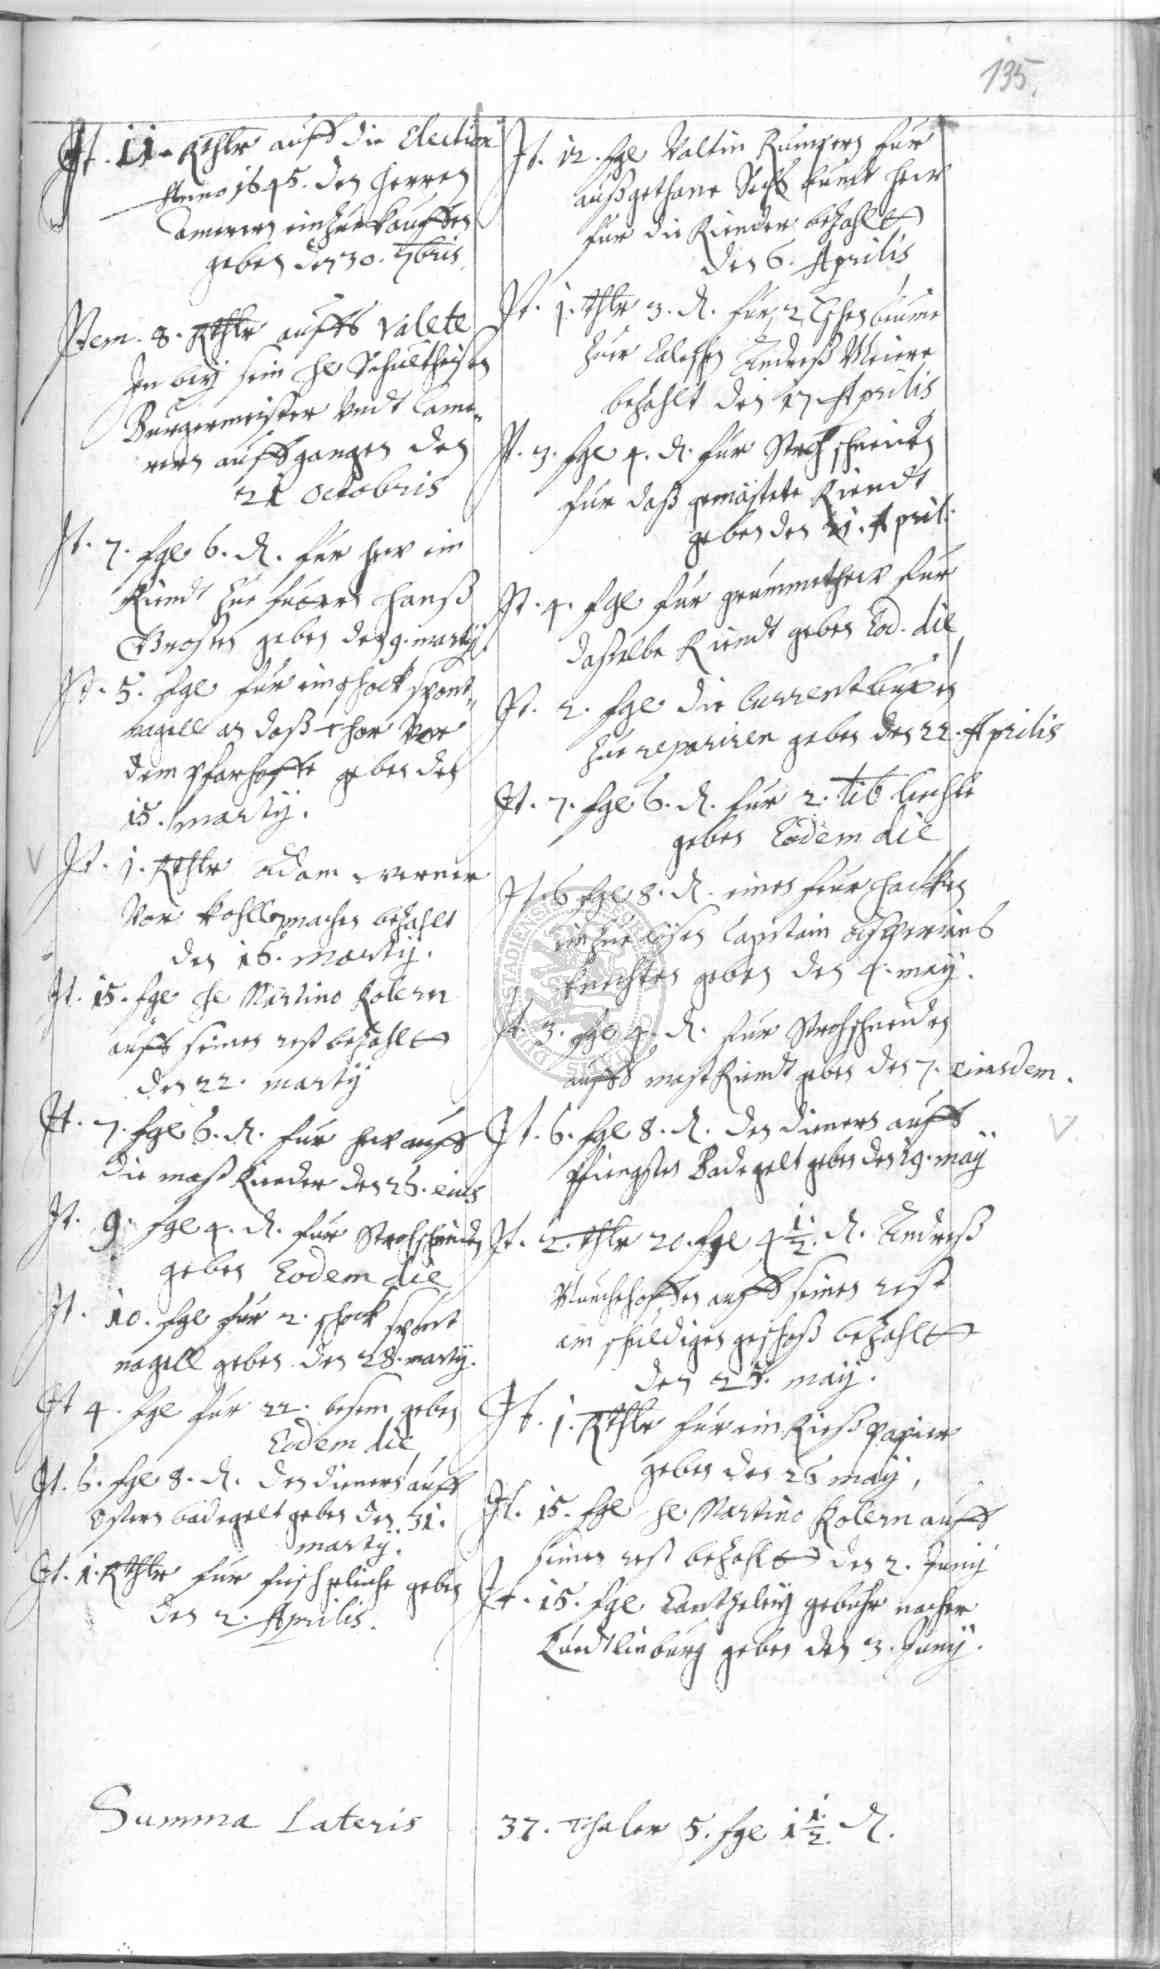 135.
It. 11. Rthlr auff die Election
Anno 1645. den Herren
Camerern einzukauffen
geben den 30. 7bris.
Item. 8. Rthlr auffs Valete
In bey sein He Schultheisen
Burgermeister Undt Came„
rern auffgangen den
21 Octobris
It. 7. sgl 6. d. fur hew im
Riendt zue futern Hanß
geben den 9. marty
It. 5. sgl fur ein schock spont„
nagell an daß Thor Vor
dem Pfarhoffe geben den
15. marty.
It. 1. Rthlr Adam Werner
Vor kohllenmachen bezahlt
den 16. marty.
It. 15. sgl He Martino Kolern
auff seinen rest bezahlt
den 22. marty
It. 7. sgl 6. d. fur hew auff
die mast Rinder den 26. eius
It. 9. sgl 4. d. fur Strohschneiden
geben Eodem die
It. 10. sgl fur 2. schock spont
nagell geben den 28. marty.
It 4. sgl fur 22. besem geben
Eodem die
It. 6. sgl 8. d. den dienern auff
Ostern badegelt geben den 31.
marty.
It. 1. Rthlr fur geben
den 2. Aprilis.
It. 12. sgl Valtin Rumpern fur
außgethane Sechs bundt hew
fur die Rinder bezahlt
den 6. Aprilis
It. 1. thlr 3. d. fur 2 Eschenbäume
zuer Caleschen Andreß Meiern
bezahlt den 17 Aprilis
It. 3. sgl 4. d. fur Stroh schneiden
fur daß gemästete Riendt
geben den 21. April.
It. 4. sgl fur grummethew fur
daselbe Riendt geben Eod. die
It. 2. sgl die Currentbuxen
zue repariren geben den 22. Aprilis
It. 7. sgl 6. d. fur 2. lib liechte
geben Eodem die
It. 6 sgl 8. d. einen feur hacken
einzuelösen Capitain
knechten geben den 4. may.
It. 3. sgl 4. d. fur Strohschneiden
auffs mast Riendt geben den 7. eiusdem.
It. 6. sgl 8. d. den dienern auff
Pfingsten Badegelt geben den 19. may
It. 2. thlr 20. sgl 4 1/2. d. Andreß
Munchehoffen auff seinen rest
am schuldigen geschoß bezahlt
den 25. may.
It. 1. Rthlr fur ein Rieß Papier
geben den 26 may.
It. 15. sgl He Martino Kolern auff
seinen rest bezahlt den 2. Juny
It. 15. sgl Cantzeley gebuhr nacher
Quedtlinburg geben den 3. Juny.
Summa Lateris 37. Thaler 5. sgl 1 1/2. d.